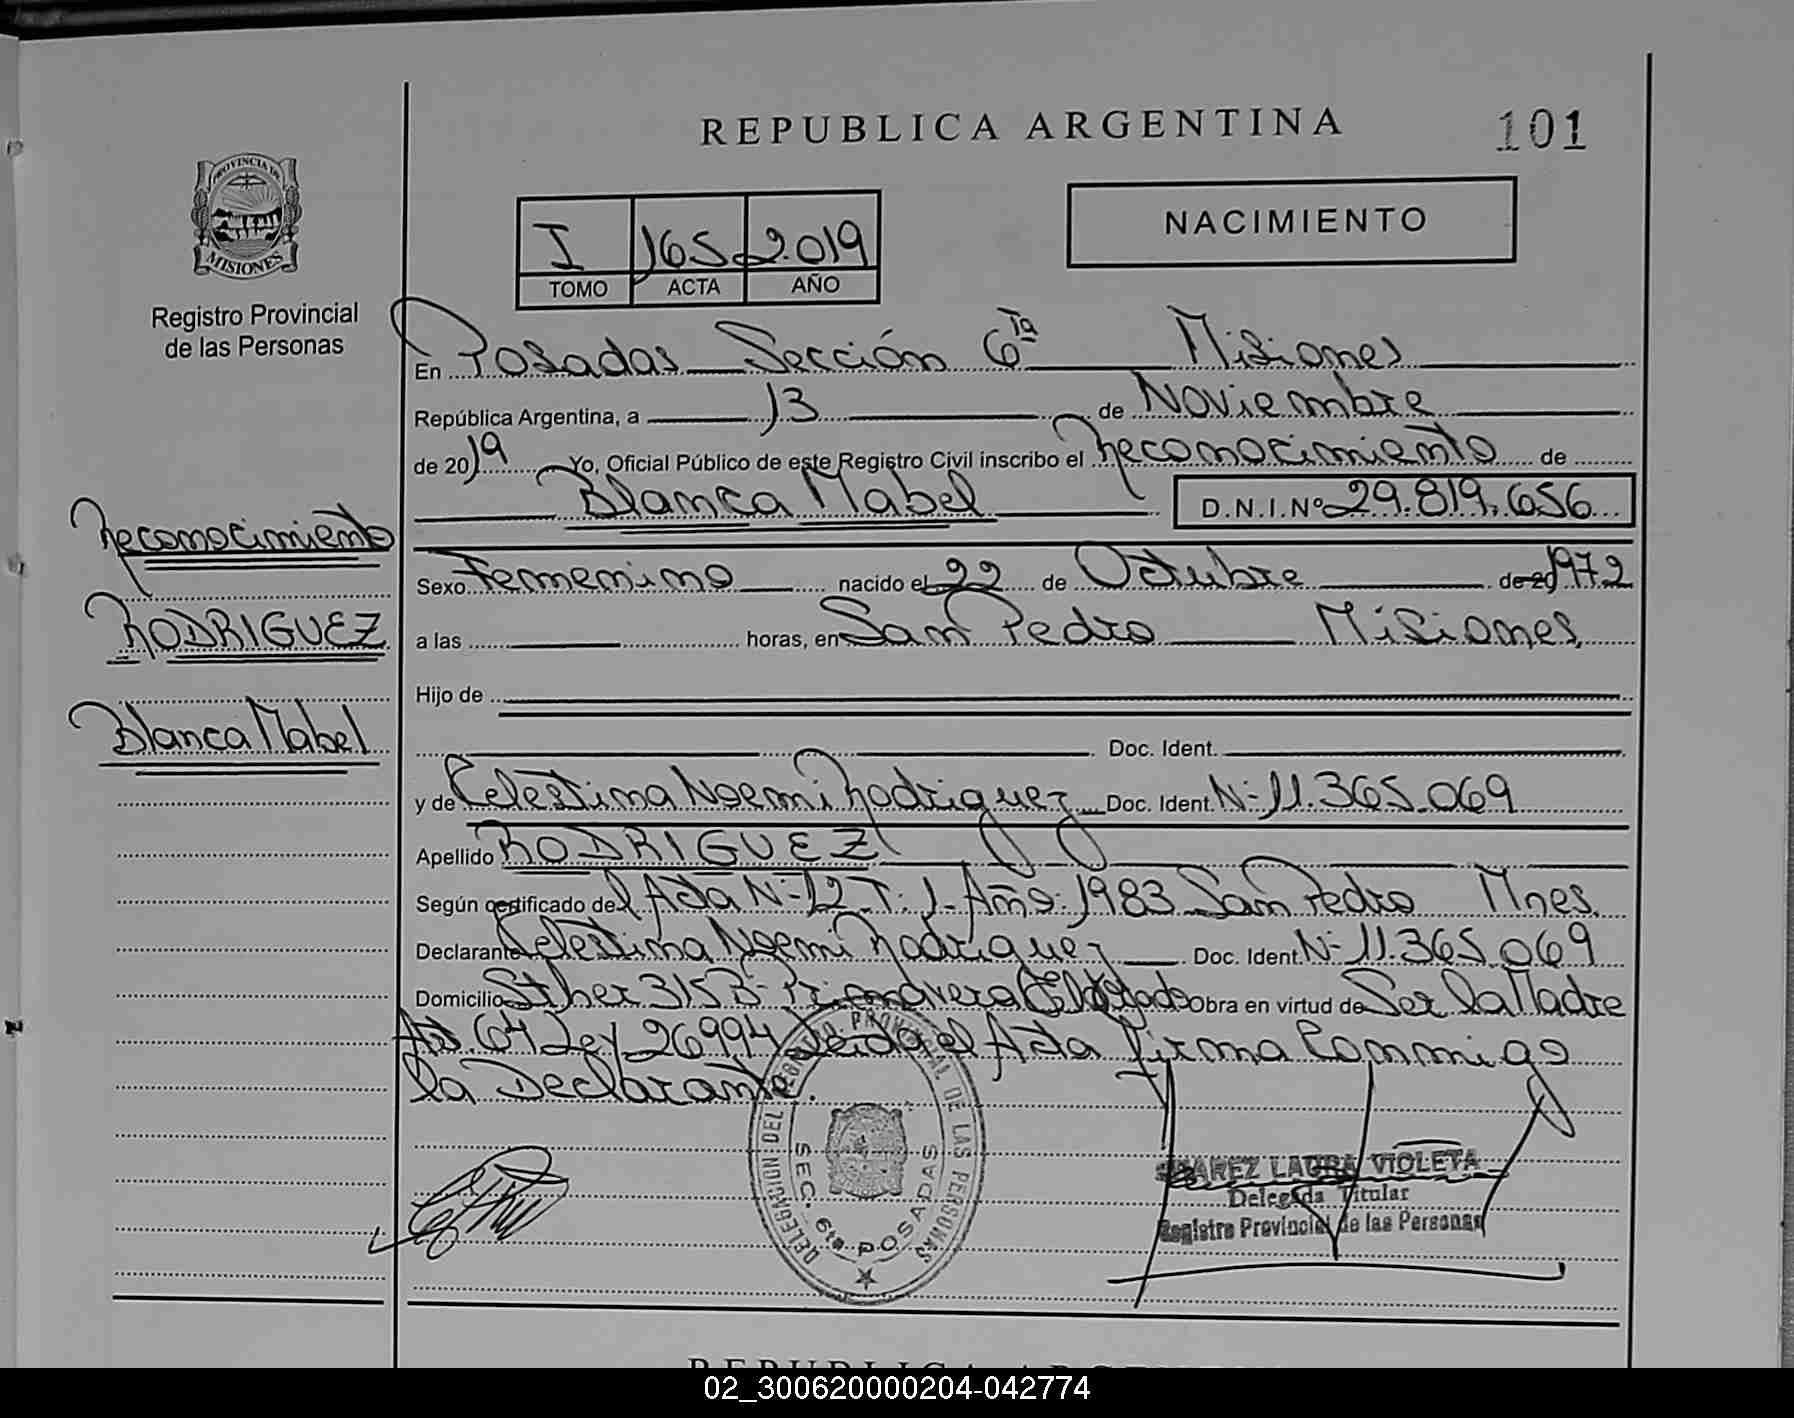 REPUBLICA ARGENTINA
101
PROVINCIA DE
MISIONES
Registro Provincial
de las Personas
I 165 2.019
TOMO ACTA AÑO
NACIMIENTO
En Posadas Sección 6ta Misiones
República Argentina, a 13 de Noviembre
de 2019 Yo, Oficial Público de este Registro Civil inscribo el Reconocimiento de
Blanca Mabel D.N.I.Nº 29.819.656
Reconocimiento
RODRIGUEZ
Blanca Mabel
Sexo Femenino nacido el 22 de Octubre de 20 1972
a las horas, en San Pedro Misiones,
Hijo de
Doc. Ident.
y de Celestina Noemi Rodriguez Doc. Ident. Nº 11.365.069
Apellido RODRIGUEZ
Según certificado del Acta Nº 12 T: 1 Año: 1983 San Pedro Mnes.
Declarante Celestina Noemi Rodriguez Doc. Ident. Nº 11.365.069
Domicilio 3153 Primavera Obra en virtud de Ser la Madre
Art. 64 Ley 26994 Leida el Acta firma Conmigo
la Declarante.
DELEGACION DEL REGISTRO PROVINCIAL DE LAS PERSONAS
SEC. 6ta POSADAS
SUAREZ LAURA VIOLETA
Delegada Titular
Registro Provincial de las Personas
02_300620000204-042774